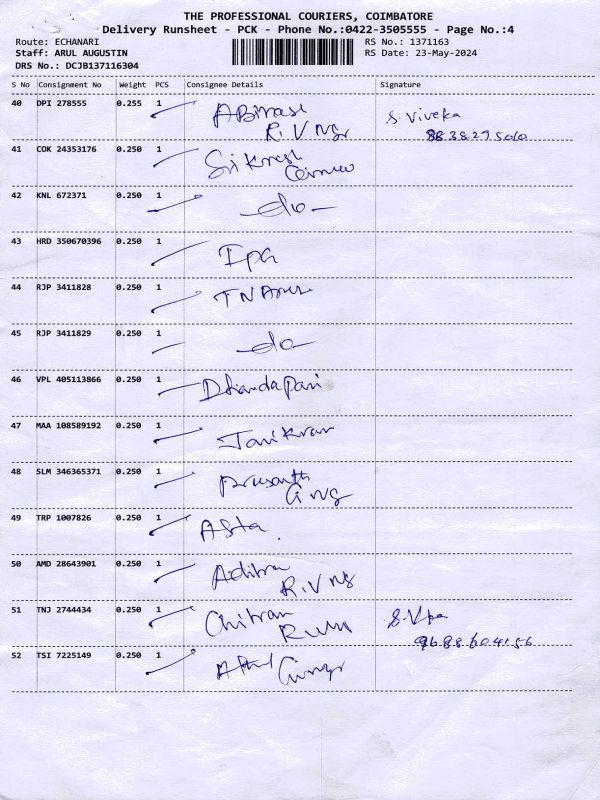 THE PROFESSIONAL COURIERS, COIMBATORE
Delivery Runsheet - PCK - Phone No.:0422-3505555 - Page No.:4
Route: ECHANARI RS No.: 1371163
Staff: ARUL AUGUSTIN RS Date: 23-May-2024
DRS No.: DCJB137116304
S No Consignment No Weight PCS Consignee Details Signature
40 DPI 278555 0.255 1 S. Viveka
R.V Ngr
41 COK 24353176 0.250 1
42 KNL 672371 0.250 1 -do-
43 HRD 350670396 0.250 1 Ipa
44 RJP 3411828 0.250 1 TN
45 RJP 3411829 0.250 1 -do-
46 VPL 405113866 0.250 1 Dhandapani
47 MAA 108589192 0.250 1
48 SLM 346365371 0.250 1 Prusanth
G Ng
49 TRP 1007826 0.250 1 Asta.
50 AMD 28643901 0.250 1 Aditra
R.V Ng
51 TNJ 2744434 0.250 1 Chitran
9688604156
52 TSI 7225149 0.250 1